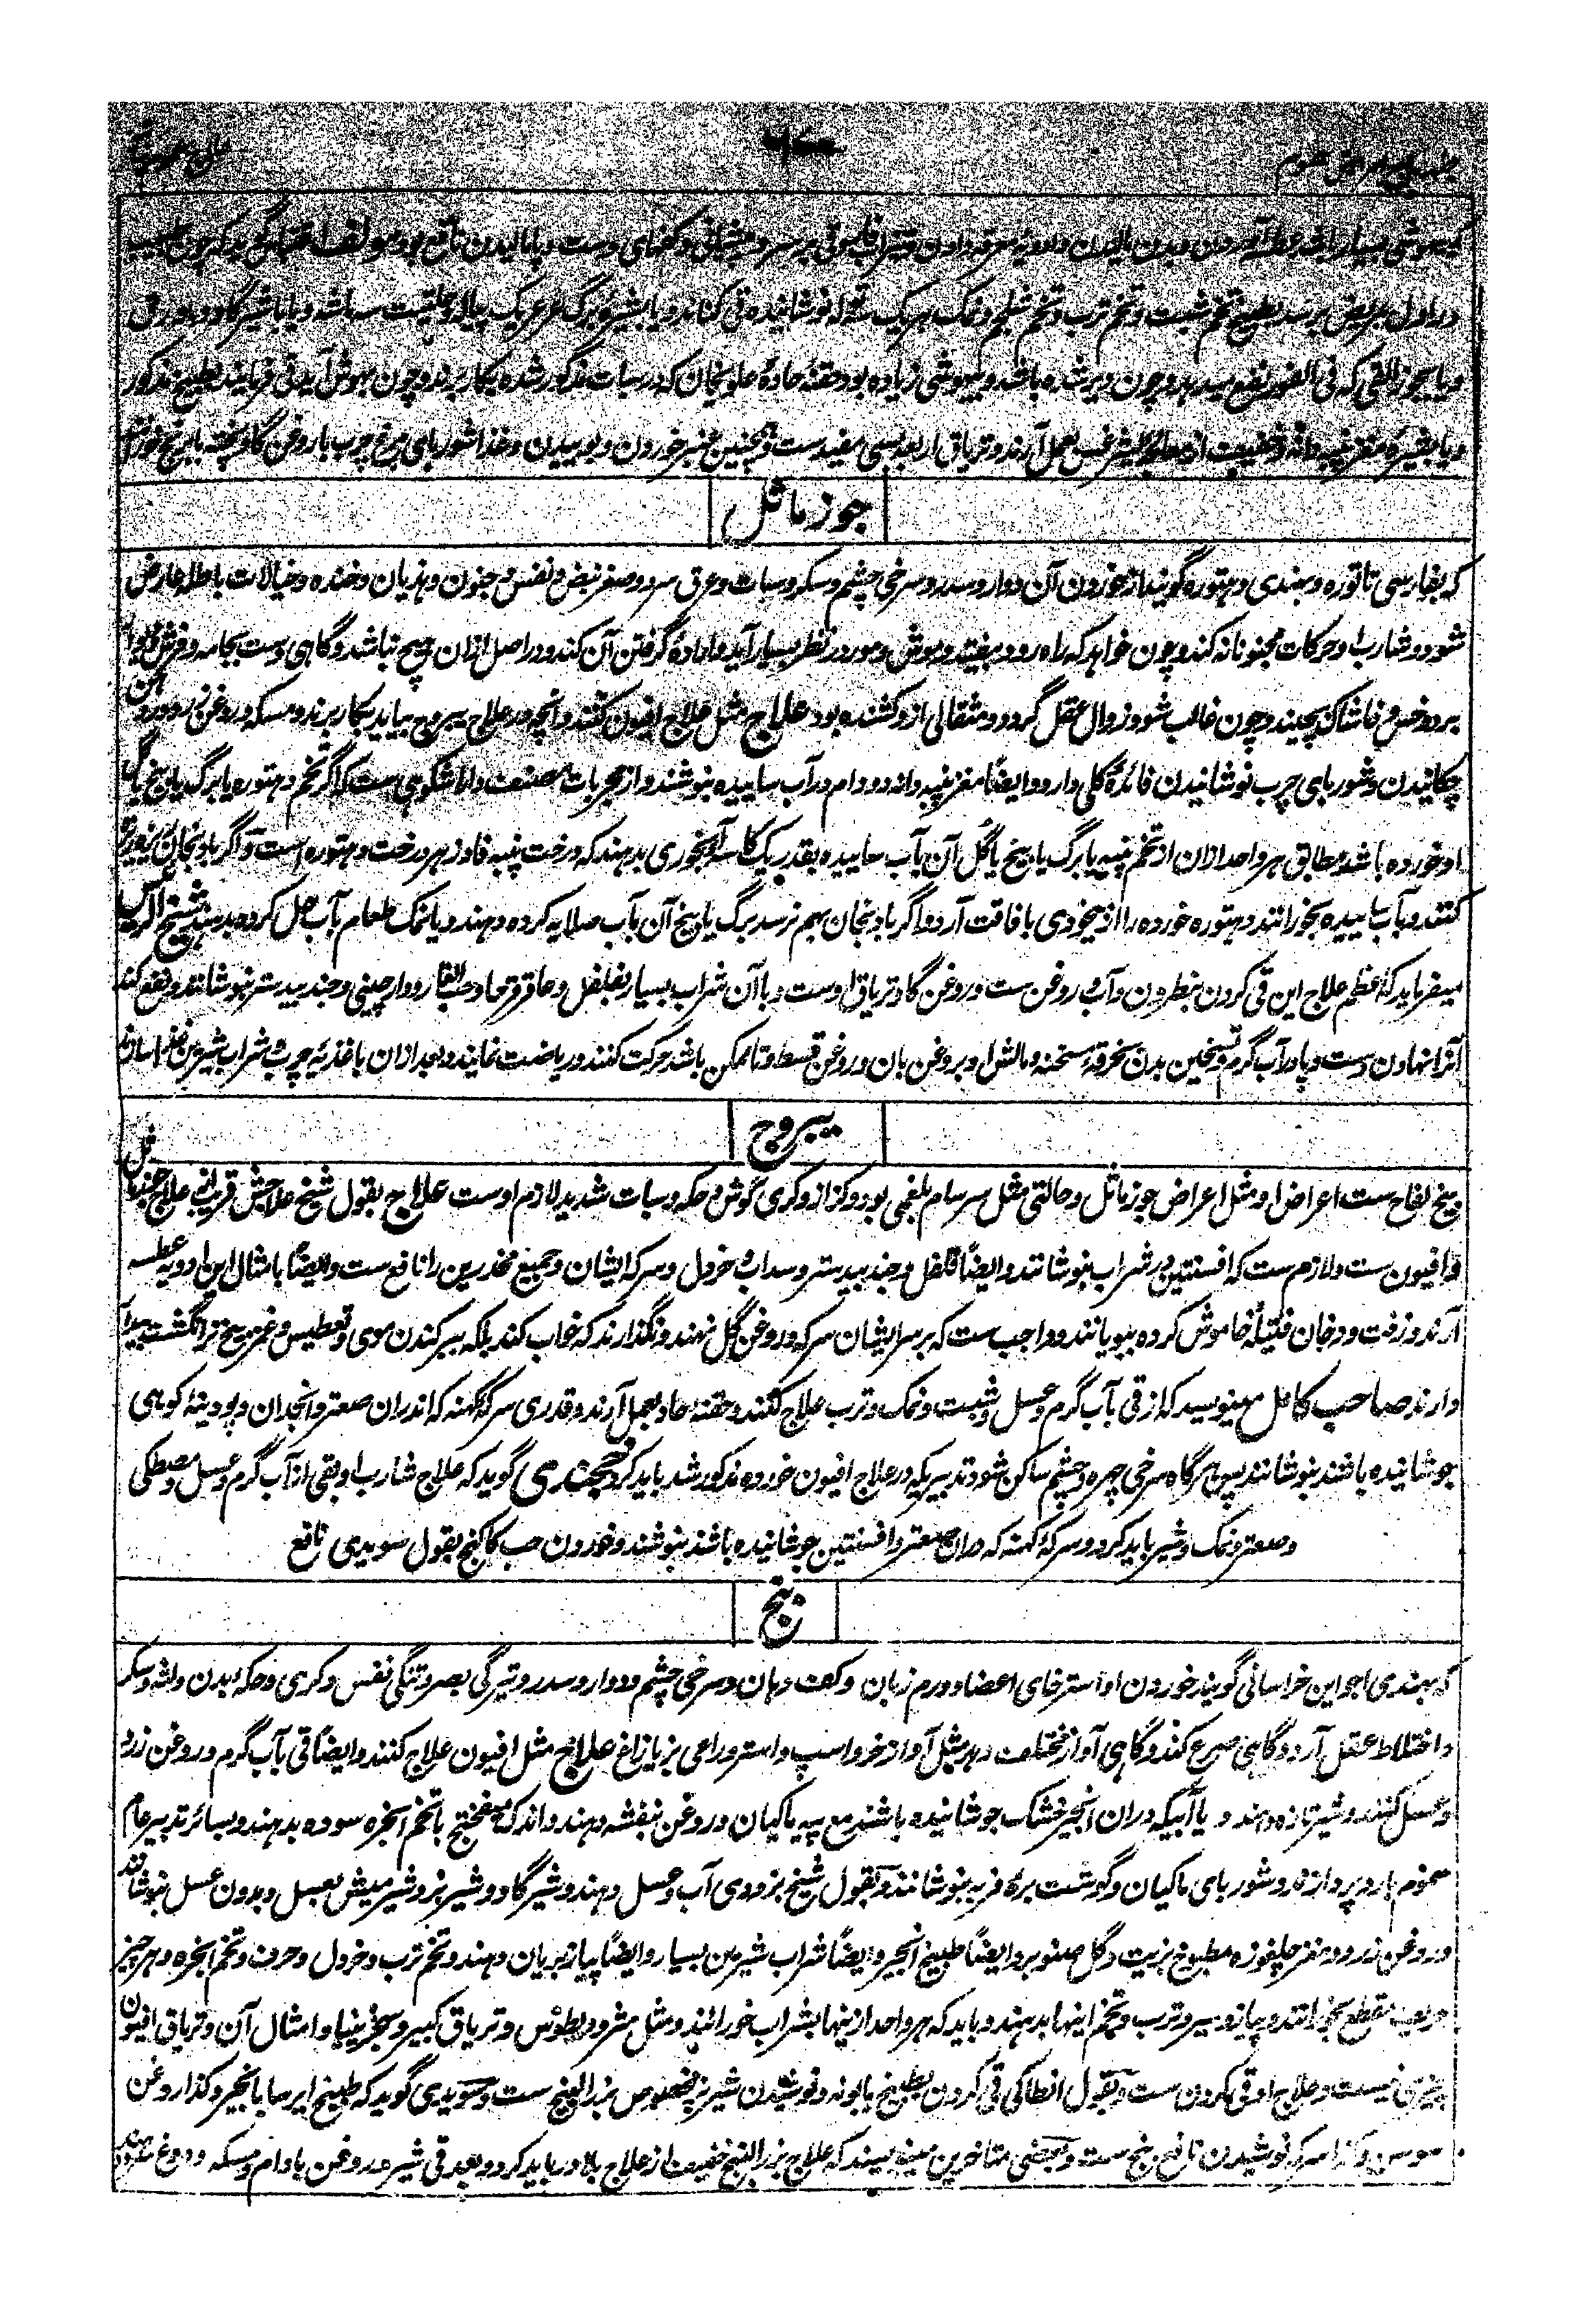 بیهوشی بسیار باشد عطسه آوردن و بدن مالیدن و ادویه معرقه دادن و برسر و پیشانی و کفهای دست و پا مالیدن نافع بود مولف گوید که چون طبیب
در اول بمریض برسد بطبیخ تخم شبت و تخم ترب و تخم شلجم و نمک هریک توله نوشانیده قی کناند و یا بشیرهٔ برگ یک پیاله و حلتیت سه ماشه و یا با شیر گاو
و یا بجوز القی که فی الفور نفع میدهد و چون دیر شده باشد و بیهوشی زیاده بود حقنهٔ حادهٔ علویخان که در سبات مذکور شده بکار برند و چون بهوش آید قی فرمایند بطبیخ مذکور
و یا بشیرهٔ مغز پنبه دانه بعمل آرند و تریاق اربعه بسی مفیدست و همچنین عنبر خوردن و بوییدن و غذا شوربای مرغ چرب با روغن گاو پخته با برنج خورانند
جوز ماثل
که بفارسی تاتوره و بهندی دهتوره گویند از خوردن آن دوار و سدر و سرخی چشم و سکر و سبات و عرق سرد و صغر نبض و نفس و جنون و هذیان و خنده و خیالات باطله عارض
شود و شارب او حرکات مجنونانه کند و چون خواهد که راه رود بیفتد و موش و مور در نظر بسیار آید و ارادهٔ گرفتن آن کند و در اصل ازان هیچ نباشد و گاهی دست بجامه و فرش و دیوار
برد و خس و خاشاک بچیند و چون غالب شود زوال عقل گردد و مثقالی ازو کشنده بود علاج مثل علاج افیون کنند و آنچه در علاج یبروج بیاید بکار برند و مسکه و روغن زرد
چکانیدن و شوربای چرب نوشانیدن فائدهٔ کلی دارد و ایضاً مغز پنبه دانه دو دام در آب ساییده بنوشند و از مجربات مصنف داراشکوهی ست که اگر تخم دهتوره یا برگ یا بیخ یا گل
او خورده باشد مطابق هر واحد ازان از تخم پنبه یا برگ یا بیخ یا گل آن بآب ساییده بقدر یک کاسه آبخوری بدهند که درخت پنبه فادزهر درخت دهتوره است و اگر بادنجان ریزه ریزه
کنند و بآب ساییده بخورانند دهتوره خورده را از بیخودی با فاقت آرد و اگر بادنجان بهم نرسد برگ یا بیخ آن بآب صلایه کرده دهند و یا نمک طعام بآب حل کرده بدهند شیخ الرئیس
میفرماید که اعظم علاج این قی کردن بنطرون و آب و روغن ست و روغن گاو تریاق اوست و با آن شراب بسیار بفلفل و عاقرقرحا و حب الغار و دارچینی و جندبیدستر بنوشانند و نفع کند
آنرا نهادن دست و پا در آب گرم و تسخین بدن بخرقهٔ مسخنه و مالش او بروغن بان و روغن قسط و تا ممکن باشد حرکت کنند و ریاضت نمایند و بعد ازان باغذیهٔ چرب و شراب شیرین
یبروج
و بیخ لفاح ست اعراض او مثل اعراض جوز ماثل و حالتی مثل سرسام بلغمی بود و کزاز و کری گوش و حکه و سبات شدید لازم اوست علاج بقول شیخ علاجش قریب علاج جوز ماثل
و افیون ست و لازم ست که افسنتین در شراب بنوشانند و ایضاً فلفل و جندبیدستر و سداب و خردل و سرکه ایشان و جمیع مخدرین را نافع ست و ایضاً بامثال این ادویه عطسه
آرند و زفت و دخان فتیلهٔ خاموش کرده ببویانند و واجب ست که بر سر ایشان سرکه و روغن گل نهند و نگذارند که خواب کند بلکه ببر کندن موی و تعطیس و غمز بیخ نر انگشت بیدار
دارند صاحب کامل مینویسد که از قی بآب گرم و عسل و شبت و نمک و ترب علاج کنند و حقنه حاد بعمل آرند و قدری سرکهٔ کهنه که اندران صعتر و انجدان و پودینهٔ کوهی
جوشانیده باشند بنوشانند پس هرگاه سرخی چهره و چشم ساکن شود تدبیریکه در علاج افیون خورده مذکور شد باید کرد خجندی گوید که علاج شارب او بقی از آب گرم و عسل و مصطکی
و صعتر و نمک و شیر باید کرد و سرکهٔ کهنه که دران صعتر و افسنتین جوشانیده باشند بنوشند و خوردن حب کاکنج بقول سویدی نافع
بنج
که بهندی اجواین خراسانی گویند خوردن او استرخای اعضا و ورم زبان و کف دهان و سرخی چشم و دوار و سدر و تیرگی بصر و تنگی نفس و کری و حکه بدن و لثه و سکر
و اختلاط عقل آرد و گاهی صرع کند و گاهی آواز مختلف دهد مثل آواز خر و اسپ و استر و راعی بز یا زاغ علاج مثل افیون علاج کنند و ایضاً قی بآب گرم و روغن زرد
و عسل کنند و شیر تازه دهند و یا آبیکه دران انجیر خشک جوشانیده باشند مع پیه ماکیان و روغن بنفشه دهند و اندک میفختج با تخم انجره سوده بدهند و بسائر تدبیر عام
سموم بارده پردازند و شوربای ماکیان و گوشت برهٔ فربه بنوشانند و بقول شیخ بزودی آب و عسل دهند و شیر گاو و شیر بز و شیر میش بعسل و بدون عسل بنوشانند
و روغن زرد و مغز چلغوزه مطبوخ بزیت و گل صنوبر و ایضاً طبیخ انجیر و ایضاً شراب شیرین بسیار و ایضاً پیاز بریان دهند و تخم ترب و خردل و حرف و تخم انجره و هر چیز
حریف مقطع بخورانند و پیاز و سیر و ترب و تخم اینها بدهند و باید که هر واحد ازینها بشراب خورانند و مثل مثرودیطوس و تریاق کبیر و سجزینیا و امثال آن و تریاق افیون
چیزی نیست و علاج او قی کردن ست و بقول انطاکی قی کردن بطبیخ بابونه و نوشیدن شیر بز مخصوص بزر البنج ست و سویدی گوید که طبیخ ایرسا با انجیر و کذا روغن
سوسن و کذا سرکه نوشیدن نافع بنج ست و بعضی متاخرین مینویسند که علاج بزر البنج خفیف از علاج بلادر باید کرد و بعد قی شیر و روغن بادام و مسکه و دوغ